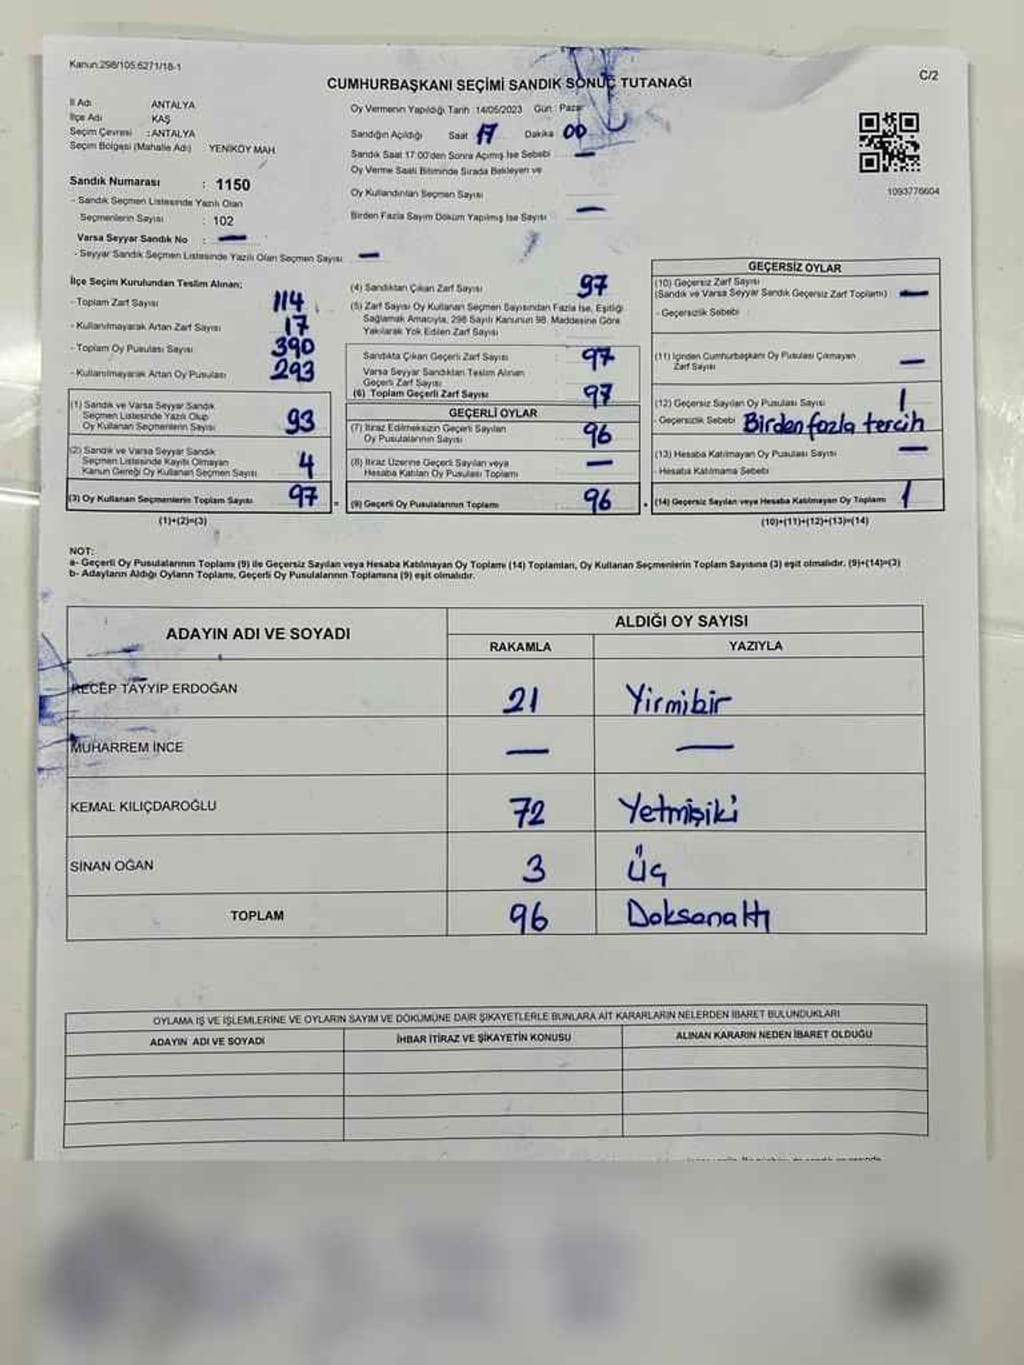 Kanun:298/105.6271/18-1
C/2
CUMHURBAŞKANI SEÇİMİ SANDIK SONUÇ TUTANAĞI
İl Adı ANTALYA
İlçe Adı KAŞ
Seçim Çevresi : ANTALYA
Seçim Bölgesi (Mahalle Adı) YENİKÖY MAH.
Sandık Numarası : 1150
- Sandık Seçmen Listesinde Yazılı Olan
Seçmenlerin Sayısı : 102
Varsa Seyyar Sandık No : —
- Seyyar Sandık Seçmen Listesinde Yazılı Olan Seçmen Sayısı : —
Oy Vermenin Yapıldığı Tarih : 14/05/2023 Gün : Pazar
Sandığın Açıldığı Saat 17 Dakika 00
Sandık Saat 17:00'den Sonra Açılmış İse Sebebi —
Oy Verme Saati Bitiminde Sırada Bekleyen ve
Oy Kullandırılan Seçmen Sayısı
Birden Fazla Sayım Döküm Yapılmış İse Sayısı —
1093776604
İlçe Seçim Kurulundan Teslim Alınan;
- Toplam Zarf Sayısı 114
- Kullanılmayarak Artan Zarf Sayısı 17
- Toplam Oy Pusulası Sayısı 390
- Kullanılmayarak Artan Oy Pusulası 293
(1) Sandık ve Varsa Seyyar Sandık
Seçmen Listesinde Yazılı Olup
Oy Kullanan Seçmenlerin Sayısı 93
(2) Sandık ve Varsa Seyyar Sandık
Seçmen Listesinde Kayıtlı Olmayan
Kanun Gereği Oy Kullanan Seçmen Sayısı 4
(3) Oy Kullanan Seçmenlerin Toplam Sayısı 97 =
(1)+(2)=(3)
(4) Sandıktan Çıkan Zarf Sayısı 97
(5) Zarf Sayısı Oy Kullanan Seçmen Sayısından Fazla İse, Eşitliği
Sağlamak Amacıyla, 298 Sayılı Kanunun 98. Maddesine Göre
Yakılarak Yok Edilen Zarf Sayısı
Sandıkta Çıkan Geçerli Zarf Sayısı : 97
Varsa Seyyar Sandıktan Teslim Alınan
Geçerli Zarf Sayısı
(6) Toplam Geçerli Zarf Sayısı : 97
GEÇERLİ OYLAR
(7) İtiraz Edilmeksizin Geçerli Sayılan
Oy Pusulalarının Sayısı : 96
(8) İtiraz Üzerine Geçerli Sayılan veya
Hesaba Katılan Oy Pusulası Toplamı : —
(9) Geçerli Oy Pusulalarının Toplamı : 96 +
GEÇERSİZ OYLAR
(10) Geçersiz Zarf Sayısı
(Sandık ve Varsa Seyyar Sandık Geçersiz Zarf Toplamı) : —
- Geçersizlik Sebebi :
(11) İçinden Cumhurbaşkanı Oy Pusulası Çıkmayan
Zarf Sayısı —
(12) Geçersiz Sayılan Oy Pusulası Sayısı 1
- Geçersizlik Sebebi : Birden fazla tercih
(13) Hesaba Katılmayan Oy Pusulası Sayısı —
- Hesaba Katılmama Sebebi
(14) Geçersiz Sayılan veya Hesaba Katılmayan Oy Toplamı : 1
(10)+(11)+(12)+(13)=(14)
NOT:
a- Geçerli Oy Pusulalarının Toplamı (9) ile Geçersiz Sayılan veya Hesaba Katılmayan Oy Toplamı (14) Toplamları, Oy Kullanan Seçmenlerin Toplam Sayısına (3) eşit olmalıdır. (9)+(14)=(3)
b- Adayların Aldığı Oyların Toplamı, Geçerli Oy Pusulalarının Toplamına (9) eşit olmalıdır.
ADAYIN ADI VE SOYADI
ALDIĞI OY SAYISI
RAKAMLA YAZIYLA
RECEP TAYYİP ERDOĞAN 21 Yirmibir
MUHARREM İNCE — —
KEMAL KILIÇDAROĞLU 72 Yetmişiki
SİNAN OĞAN 3 Üç
TOPLAM 96 Doksanaltı
OYLAMA İŞ VE İŞLEMLERİNE VE OYLARIN SAYIM VE DÖKÜMÜNE DAİR ŞİKAYETLERLE BUNLARA AİT KARARLARIN NELERDEN İBARET BULUNDUKLARI
ADAYIN ADI VE SOYADI İHBAR İTİRAZ VE ŞİKAYETİN KONUSU ALINAN KARARIN NEDEN İBARET OLDUĞU